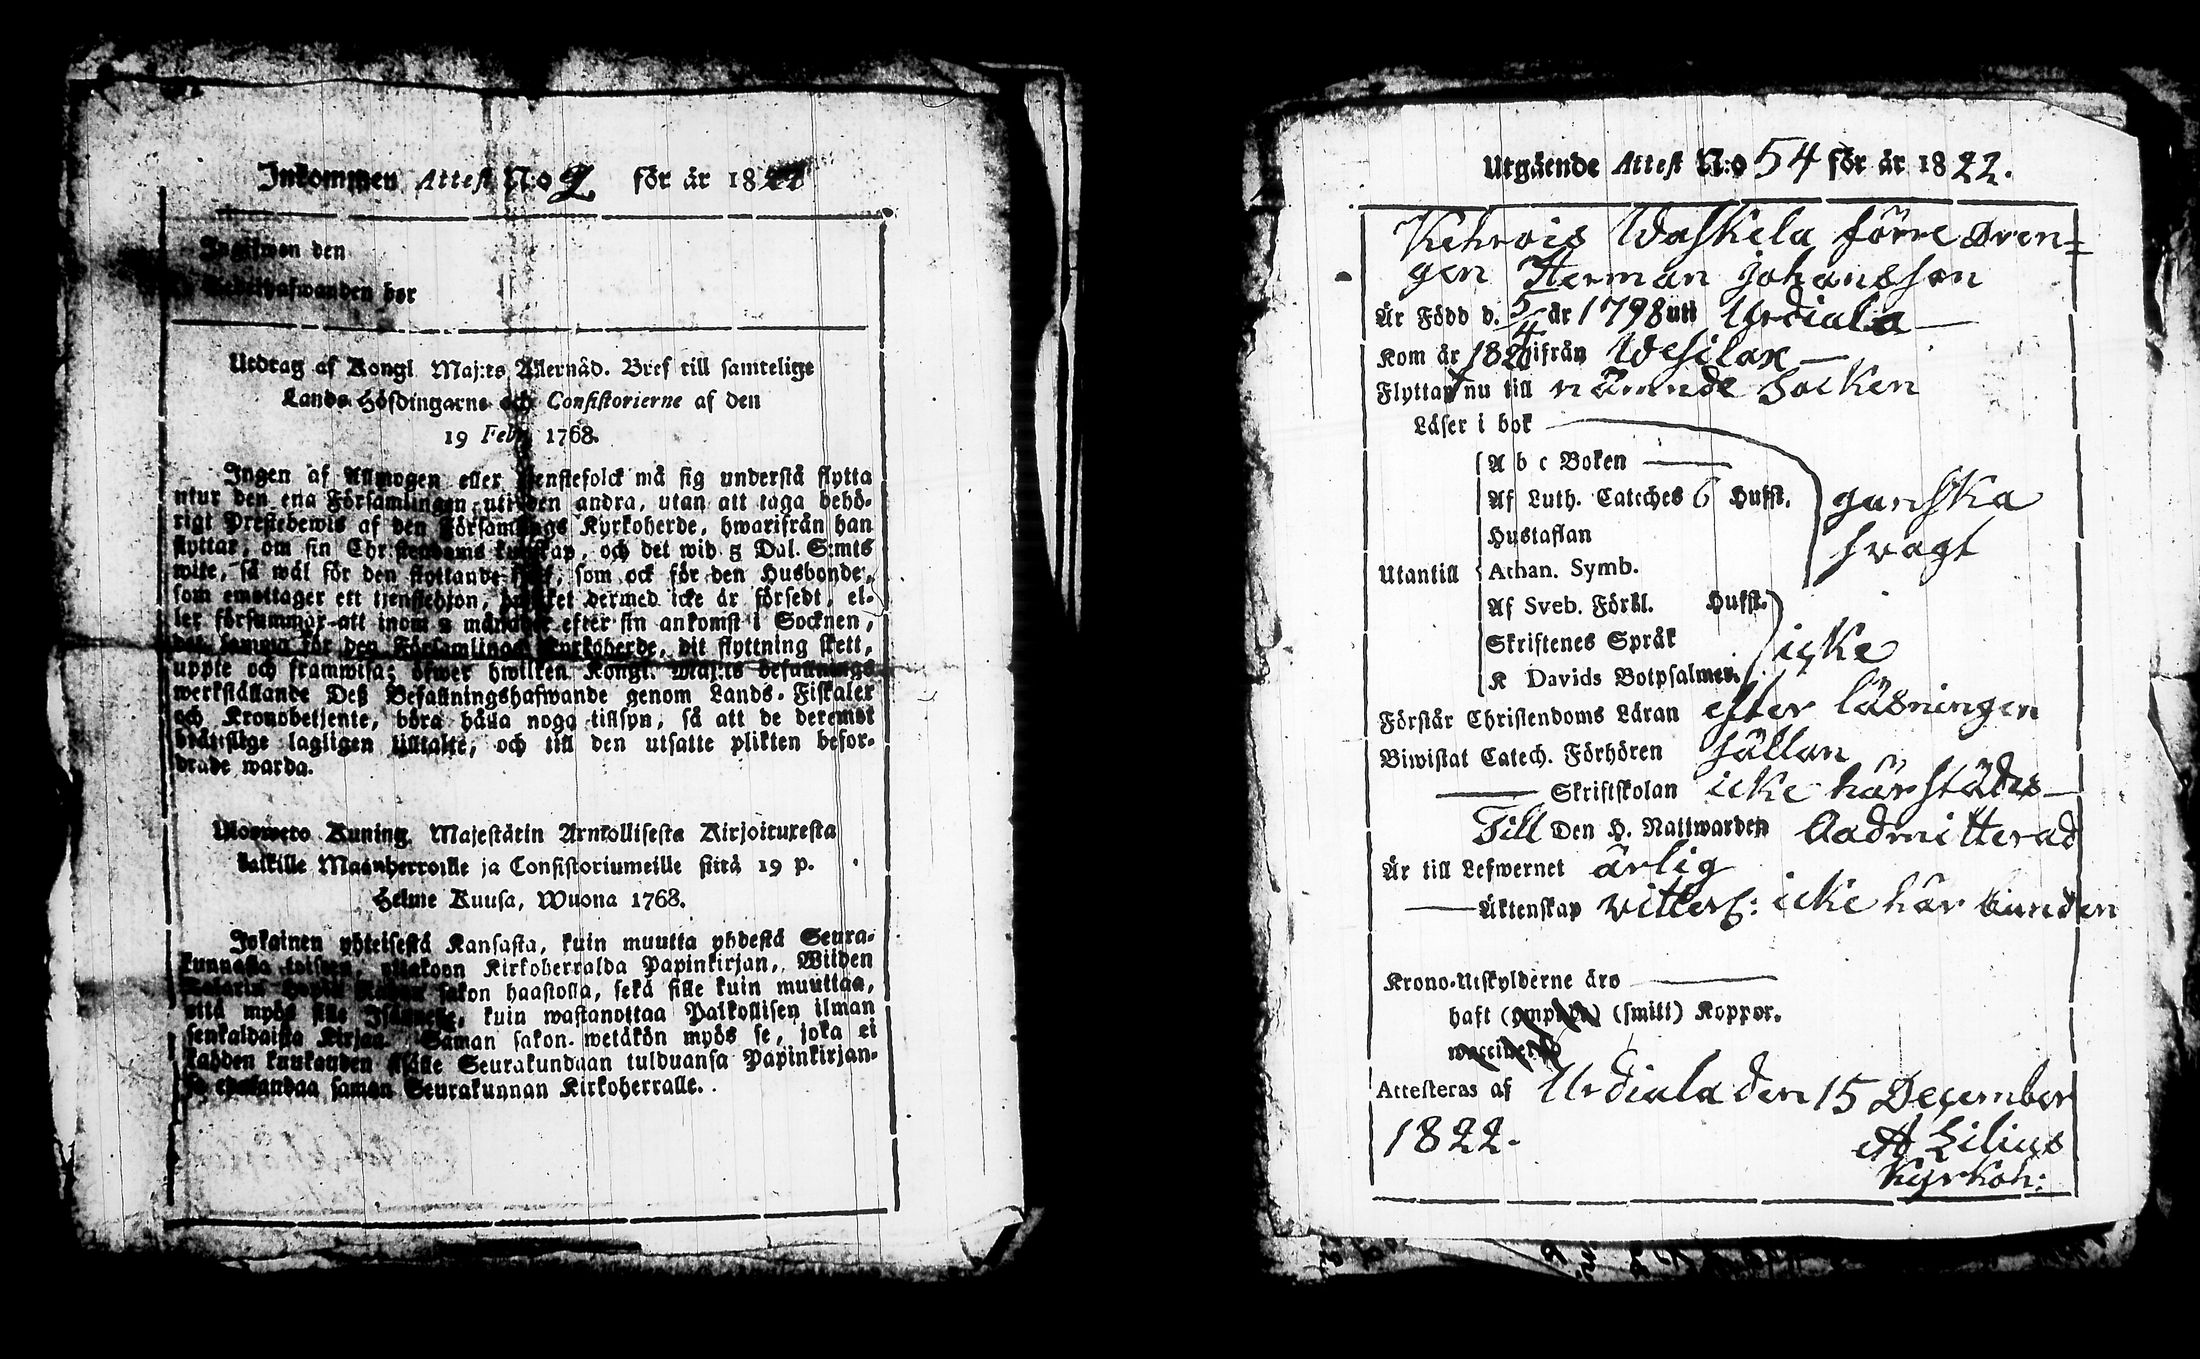 Inkommen Attest N:o 2 för år 18
Ingifwen den
Utdrag af Kongl. Maj:ts Allernåd. Bref till samtelige
Lands Höfdingarne och Consistorierne af den
19 Febr. 1768.
Ingen af Allmogen eller Tjenstefolck må sig understå flytta
utur den ena Församlingen uti den andra, utan att taga behö-
rigt Prestebewis af den Församlings Kyrkoherde, hwarifrån han
flyttar, om sin Christendoms kunskap, och det wid 5 Dal. S:mts
wite, så wäl för den flyttande, som ock för den Husbonde,
som emottager ett tjenstehjon, hwilket dermed icke är försedt, el-
ler försummar att inom 2 månader efter sin ankomst i Socknen,
det samma för den Församlings Kyrkoherde, dit flyttning skett,
uppte och framwisa; öfwer hwilken Kongl. Maj:ts befallnings
werkställande Deß Befallningshafwande genom Lands-Fiskaler
och Kronobetjente, böra hålla noga tillsyn, så att de deremot
bräcklige lagligen tilltalte, och till den utsatte plikten befor-
drade warda.
Ulosweto Kuning. Majestätin Armollisesta Kirjoituxesta
kaikille Maanherroille ja Consistoriumeille siitä 19 p.
Helme Kuusa, Wuona 1768.
Jokainen yhteisestä Kansasta, kuin muutta yhdestä Seura-
kunnasta toiseen, ottakoon Kirkoherralda Papinkirjan, Wiiden
sakon haastolla, sekä sille kuin muuttaa,
että myös sille Isännelle, kuin wastanottaa Palkollisen ilman
senkaldaista Kirjaa. Saman sakon wetäkön myös se, joka ei
kahden kuukauden sisälle Seurakundaan tulduansa Papinkirjan-
sa edesandaa saman Seurakunnan Kirkoherralle.
Utgående Attest N:o 54 för år 1822.
Kehrois Waskela förre Dren=
gen Herman Johansson
Är Född d. 5/4 år 1798 uti Urdiala
Kom år 182 ifrån Wesilax
Flyttar nu till nämnde Socken
Läser i bok
A b c Boken
Af Luth. Catches 6 Hufst. ganska
Hustaflan svagt
Utantill Athan. Symb.
Af Sveb. Förkl. Hufst.
Skriftenes Språk icke
K Davids Botpsalmer.
Förstår Christendoms Läran efter läsningen
Biwistat Catech. Förhören sällan
Skriftskolan icke härstädes
Till Den H. Nattwarden Admitterad
Är till Lefwernet ärlig
Äktenskap vitterl: icke här bunden
Krono-Utskylderne äro
haft (ympade) (smitt) Koppor.
waccinerad
Attesteras af Urdiala den 15 December
1822.
A Lilius
Kyrkoh: